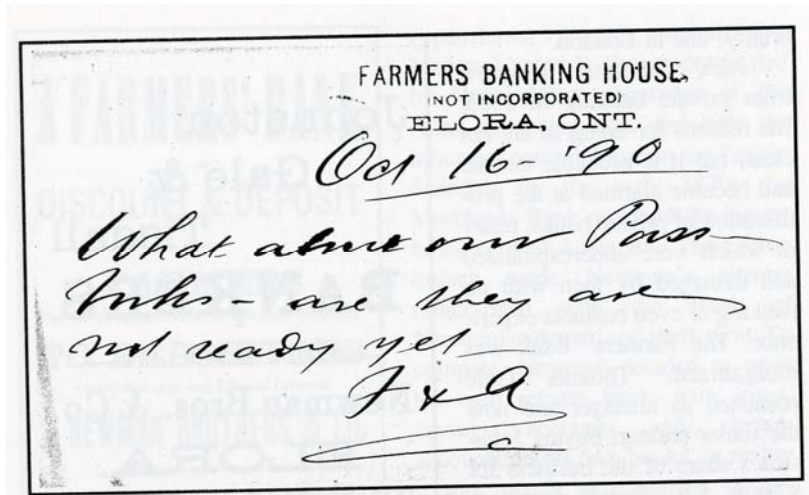 FARMERS BANKING HOUSE,
(NOT INCORPORATED)
ELORA, ONT.
Oct 16 - '90
What about our Pass
Books - are they
not ready yet